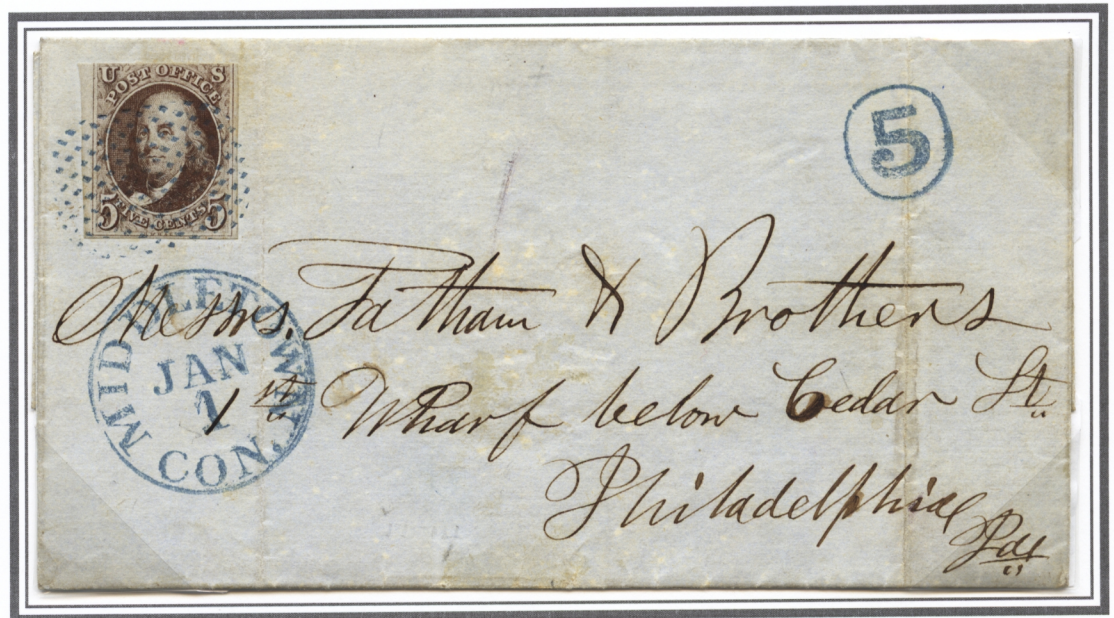 U S
POST OFFICE
5 FIVE CENTS 5
5
MIDDLETOWN
JAN
1
CON.
Messrs. Tatham & Brothers
1st Wharf below Cedar St.
Philadelphia
Pa